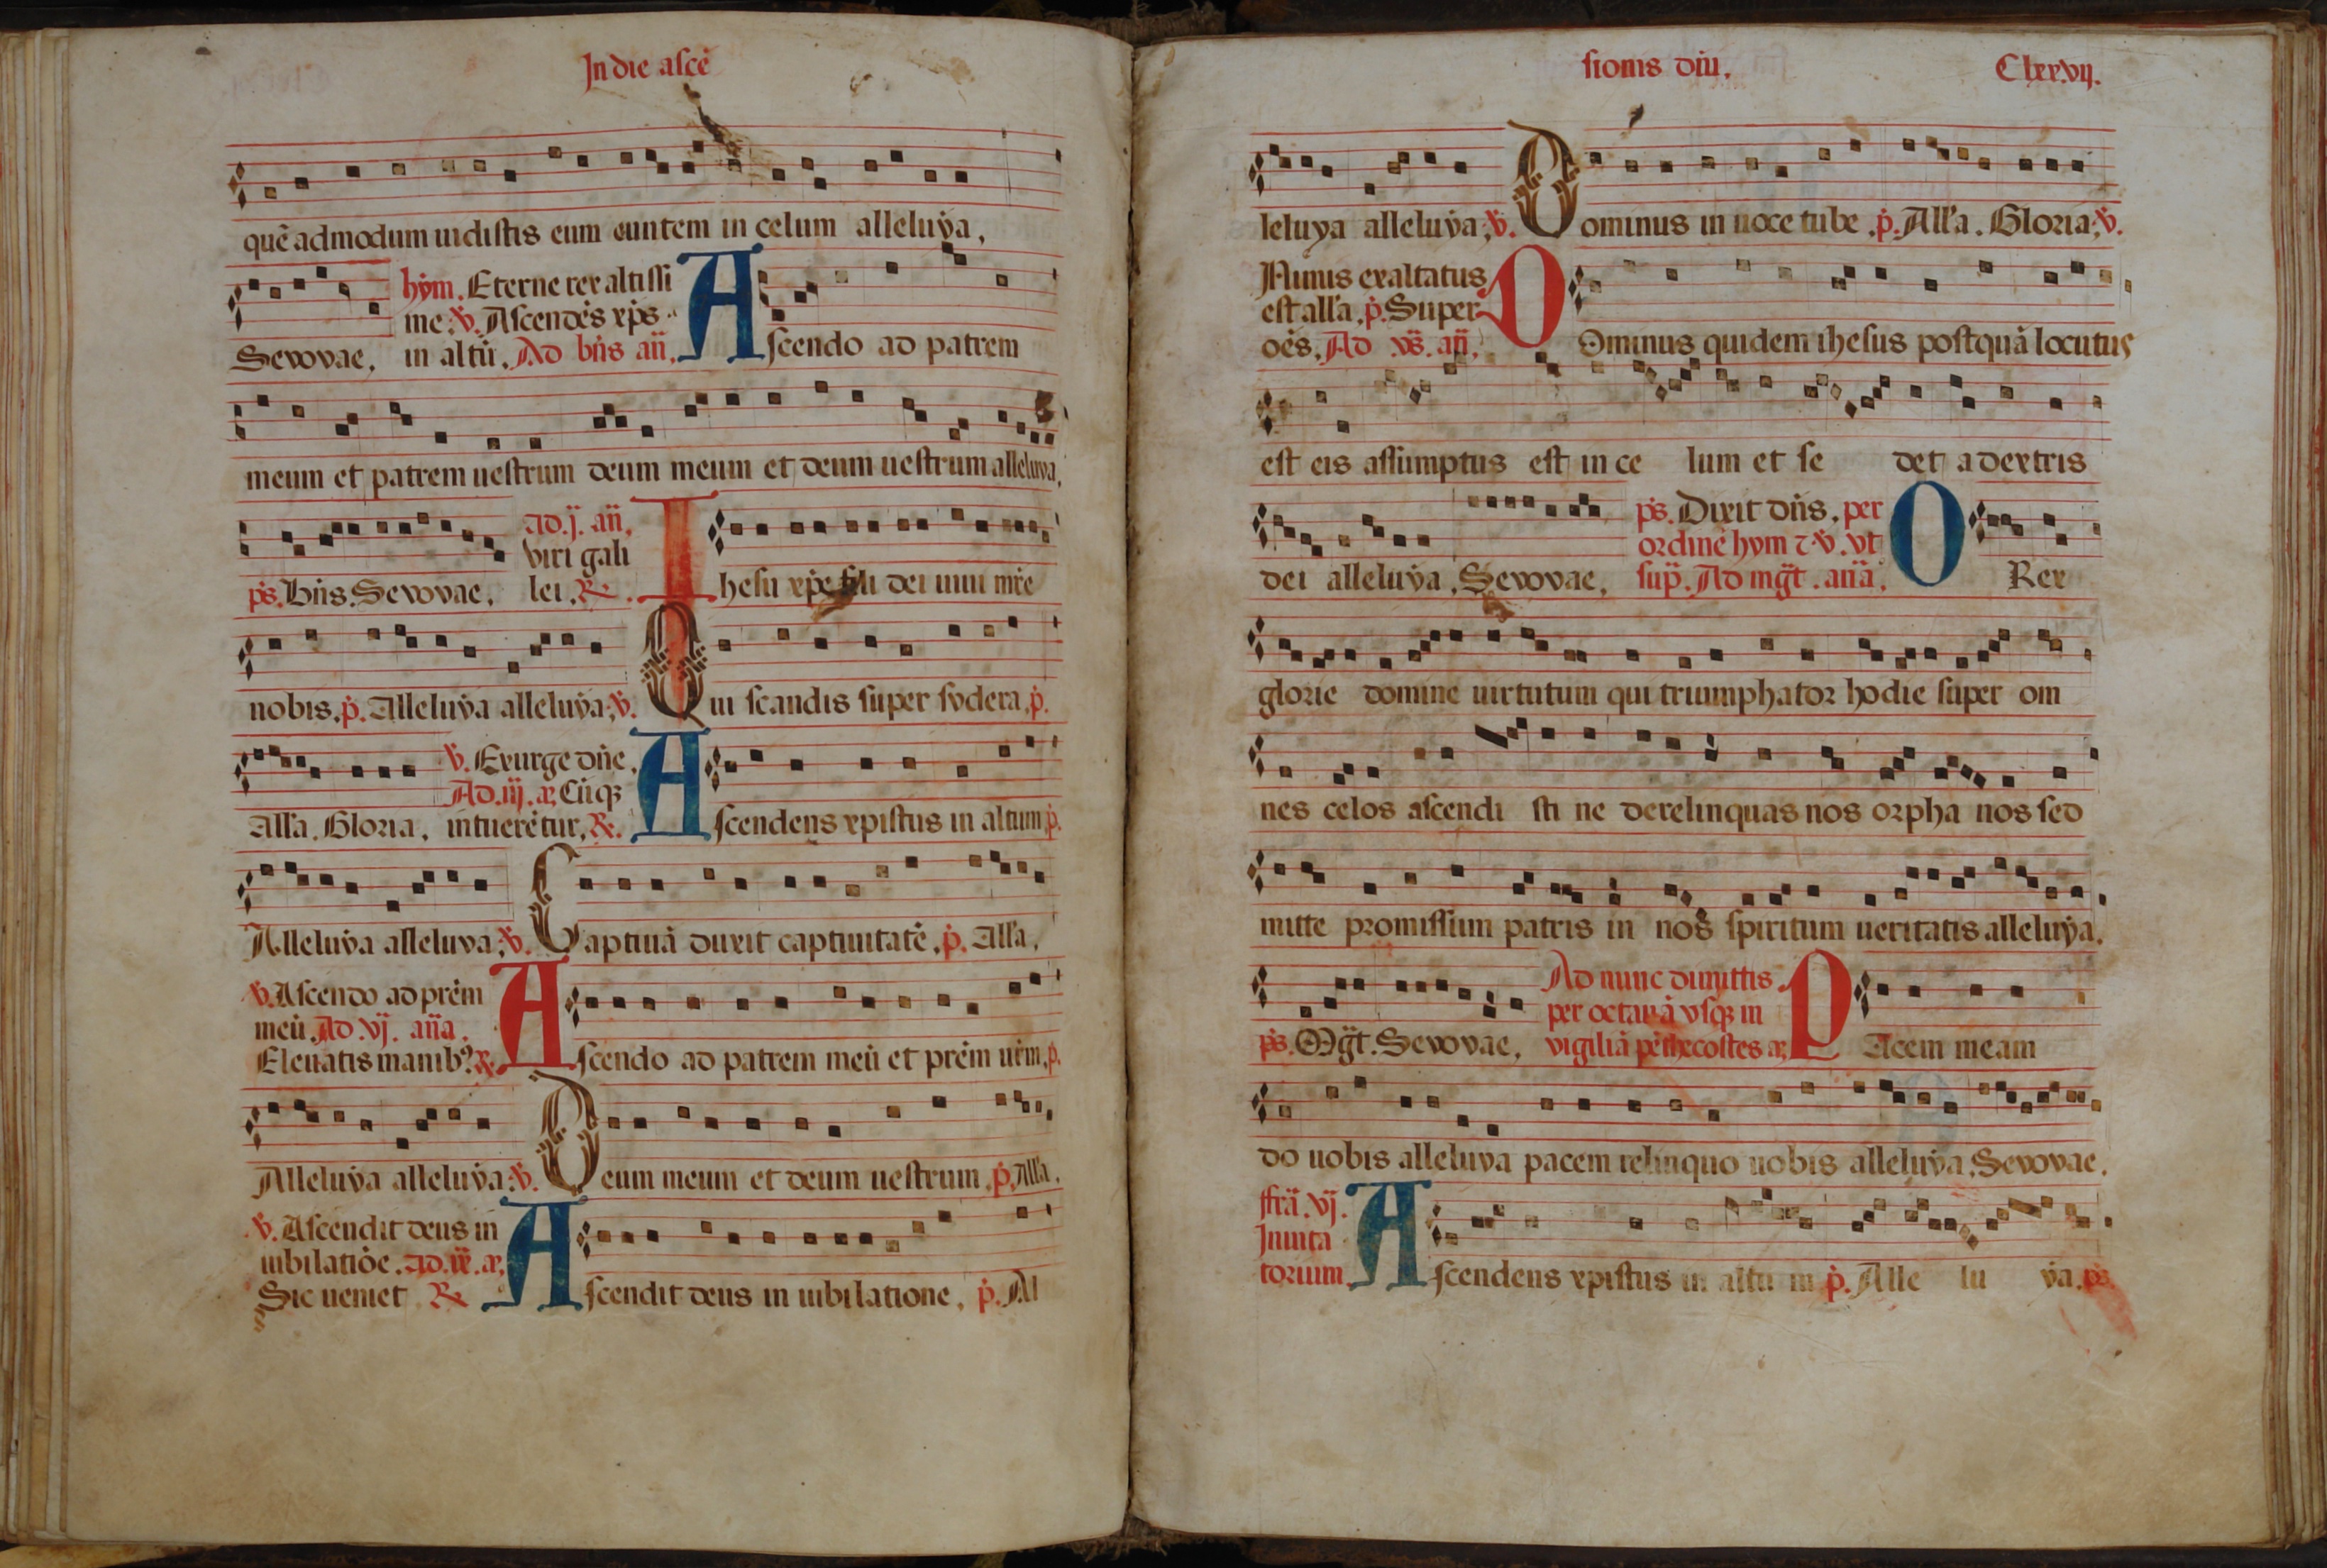 In die asce᷑
que᷑ admodum uidistis eum euntem in celum alleluẏa,
hẏm. Eterne rex altissi
me. v̇. Ascende᷑s xp̄s
Sevovae, in altū. Ad bn̄s an̄. Ascendo ad patrem
meum et patrem uestrum deum meum et deum uestrum alleluẏa,
ad .j. an̄.
Viri gali
ps. Bn̄s. Sevovae, lei. R̸. Ihesu xp̄e fili dei uiui
nobis. p̊. Alleluẏa alleluẏa: v̇. Qui scandis super sẏdera. p̊.
v̇. Exurge dn̄e.
Ad .iij. an̄. Cūqꝫ
All'a. Gloria. intuere᷑tur, R̸. Ascendens xpistus in altum. p̊.
Alleluẏa alleluẏa: v̇. Captiuā duxit captiuitatē. p̊. All'a.
v̇. Ascendo ad pr̄em
meū. Ad .vj. an̄a.
Eleuatis manibꝰ R̸. Ascendo ad patrem meū et pr̄em ur̄m. p̊.
Alleluẏa alleluẏa: v̇. Deum meum et deum uestrum. p̊. All'a.
v̇. Ascendit deus in
iubilatiōe. ad .ix. an̄.
Sic ueniet R̸. Ascendit deus in iubilatione, p̊. Al
sionis dn̄i. Clxxvij.
leluya alleluẏa: v̇. Dominus in uoce tube. p̊. All'a. Gloria: v̇.
Nimis exaltatus
est all'a. p̊. Super
oe᷑s. Ad vs̄. an̄. DOminus quidem ihesus postquā locutus
est eis assumptus est in ce lum et se det a dextris
ps. Dixit dn̄s. per
ordinē hym ⁊ v̇. vt
dei alleluẏa, Sevovae, sup̄. Ad mḡt. an̄a. O Rex
glorie domine uirtutum qui triumphator hodie super om
nes celos ascendi sti ne derelinquas nos orpha nos sed
mitte promissum patris in nos spiritum ueritatis alleluẏa.
Ad nunc dimittis
per octauā vsqꝫ in
ps. Mḡt. Sevovae, vigiliā pe᷑thecostes an̄. PAcem meam
do uobis alleluẏa pacem relinquo uobis alleluẏa. Sevovae.
ffr̄a. vj.
Inuita
torium Ascendens xpistus in altu m p̊. Alle lu ẏa. ps